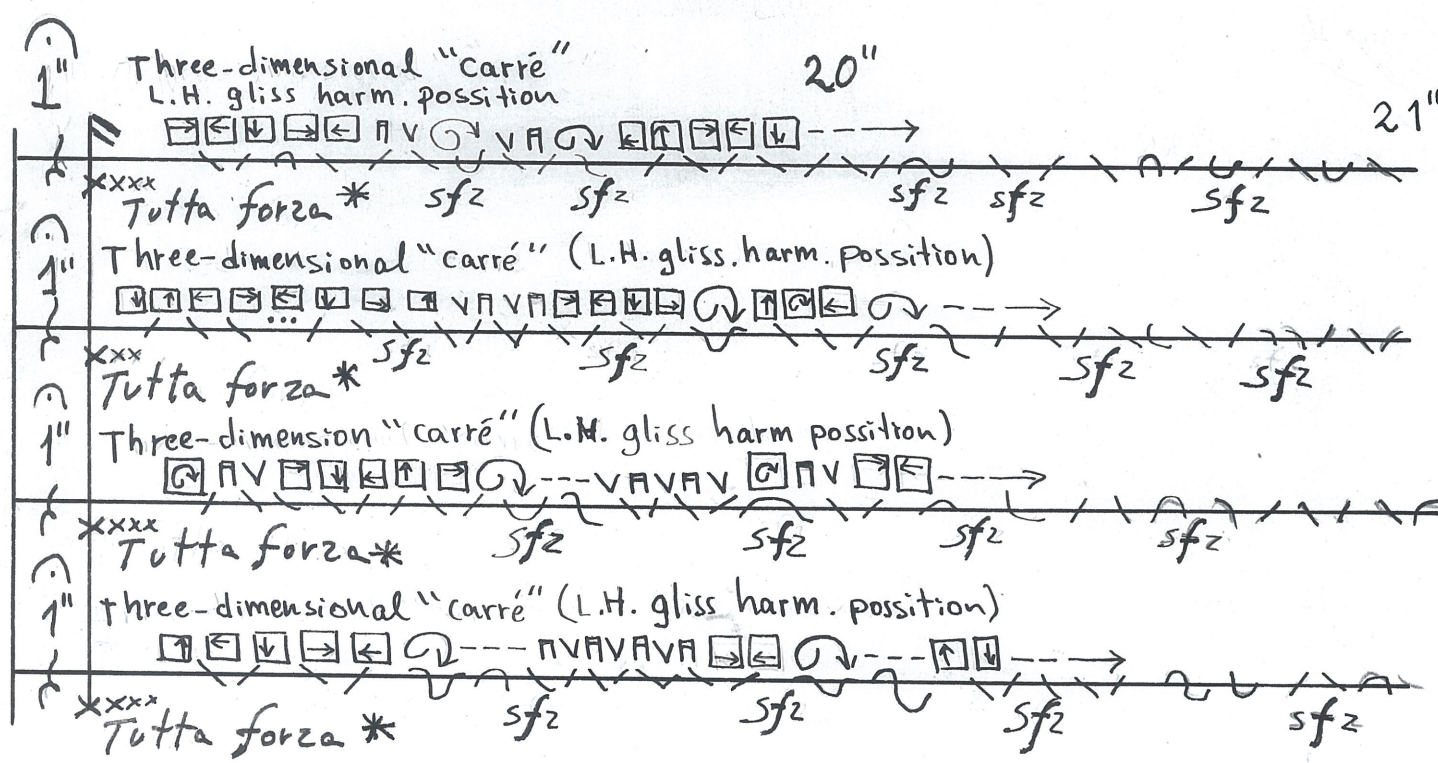 1"
Three-dimensional "carré"
20"
L.H. gliss harm. possition
21"
xxxx
Tutta forza * sfz sfz sfz sfz sfz
1"
Three-dimensional "carré" (L.H. gliss. harm. possition)
xxx
sfz sfz sfz sfz sfz
Tutta forza *
1"
Three-dimension "carré" (L.H. gliss harm possition)
xxxx
Tutta forza * sfz sfz sfz sfz
1"
three-dimensional "carré" (L.H. gliss harm. possition)
xxxx
Tutta forza * sfz sfz sfz sfz